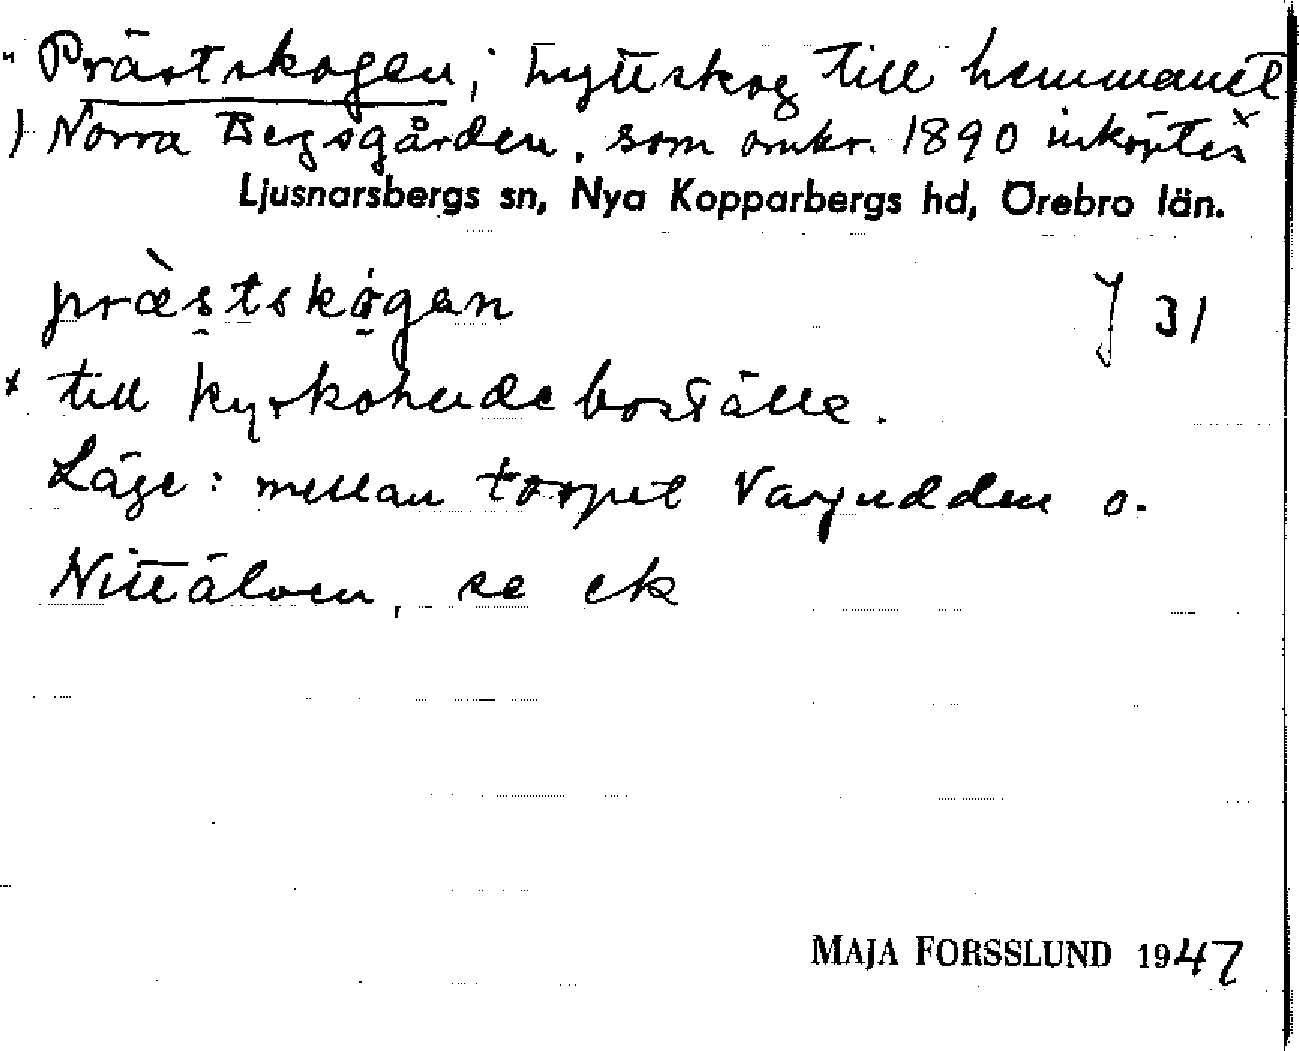 " Prästskogen, hyttskog till hemmanet
) Norra Bergsgården, som omkr. 1890 inköptes x
Ljusnarsbergs sn, Nya Kopparbergs hd, Örebro län.
præ̀stskogen J 31
x till kyrkoherdeboställe.
Läge: mellan torpet Vargudden o.
Nitteälven, se ek
MAJA FORSSLUND 1947